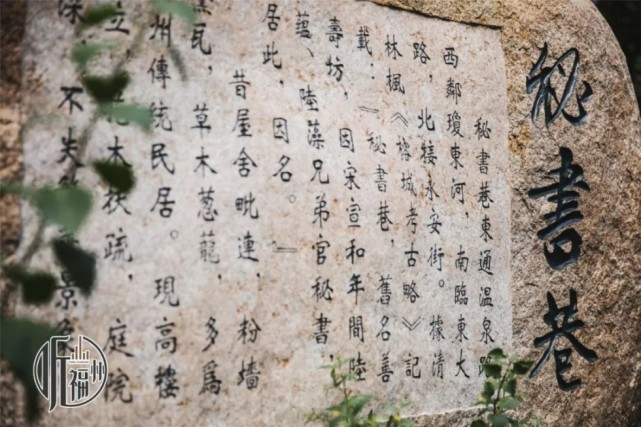 秘書巷
秘書巷東通温泉路
西鄰瓊東河，南臨東大
路，北接永安街。據清
林楓《榕城考古略》記
載：『秘書巷，舊名善
壽坊，因宋宣和年間陸
藴、陸藻兄弟官秘書，
居此，因名。』
昔屋舍毗連，粉墻
黛瓦，草木葱蘢，多為
州傳統民居。現高樓
立，花木扶疏，庭院
深 不失 景
福州